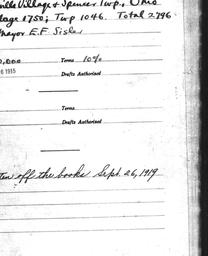 ville Village & Spencer Twp., Ohio
lage 1750; Twp 1046. Total 2796
mayor E.F. Sisler
0,000 Terms 10%
6 1915 Drafts Authorized
Terms
Drafts Authorized
ten off the books Sept. 26, 1919